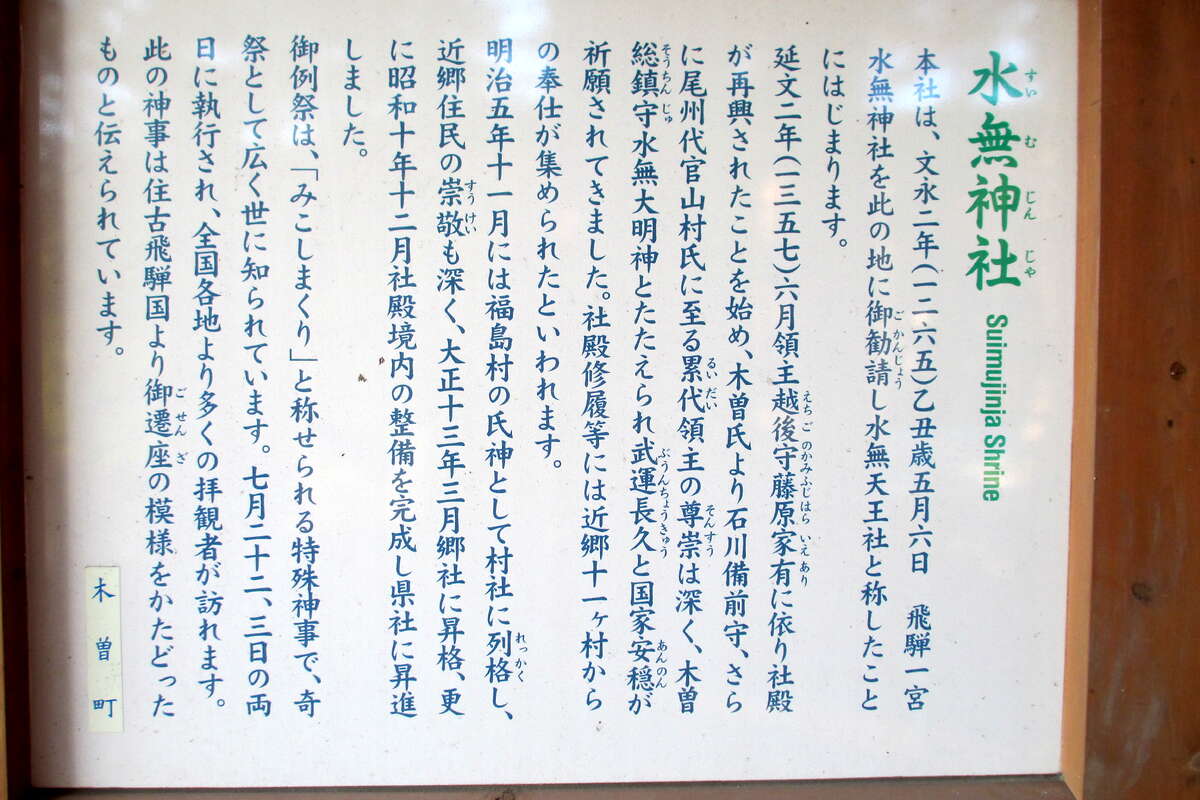 水無神社 Suimujinja Shrine
すいむじんじゃ
本社は、文永二年(一二六五)乙丑歳五月六日 飛騨一宮
水無神社を此の地に御勧請し水無天王社と称したこと
ごかんじょう
にはじまります。
延文二年(一三五七)六月領主越後守藤原家有に依り社殿
えちごのかみふじはらいえあり
が再興されたことを始め、木曽氏より石川備前守、さら
に尾州代官山村氏に至る累代領主の尊崇は深く、木曽
るいだい そんすう
総鎮守水無大明神とたたえられ武運長久と国家安穏が
そうちんじゅ ぶうんちょうきゅう あんのん
祈願されてきました。社殿修履等には近郷十一ヶ村から
の奉仕が集められたといわれます。
明治五年十一月には福島村の氏神として村社に列格し、
れっかく
近郷住民の崇敬も深く、大正十三年三月郷社に昇格、更
すうけい
に昭和十年十二月社殿境内の整備を完成し県社に昇進
しました。
御例祭は、「みこしまくり」と称せられる特殊神事で、奇
祭として広く世に知られています。七月二十二、三日の両
日に執行され、全国各地より多くの拝観者が訪れます。
此の神事は住古飛騨国より御遷座の模様をかたどった
ごせんざ
ものと伝えられています。
木曽町